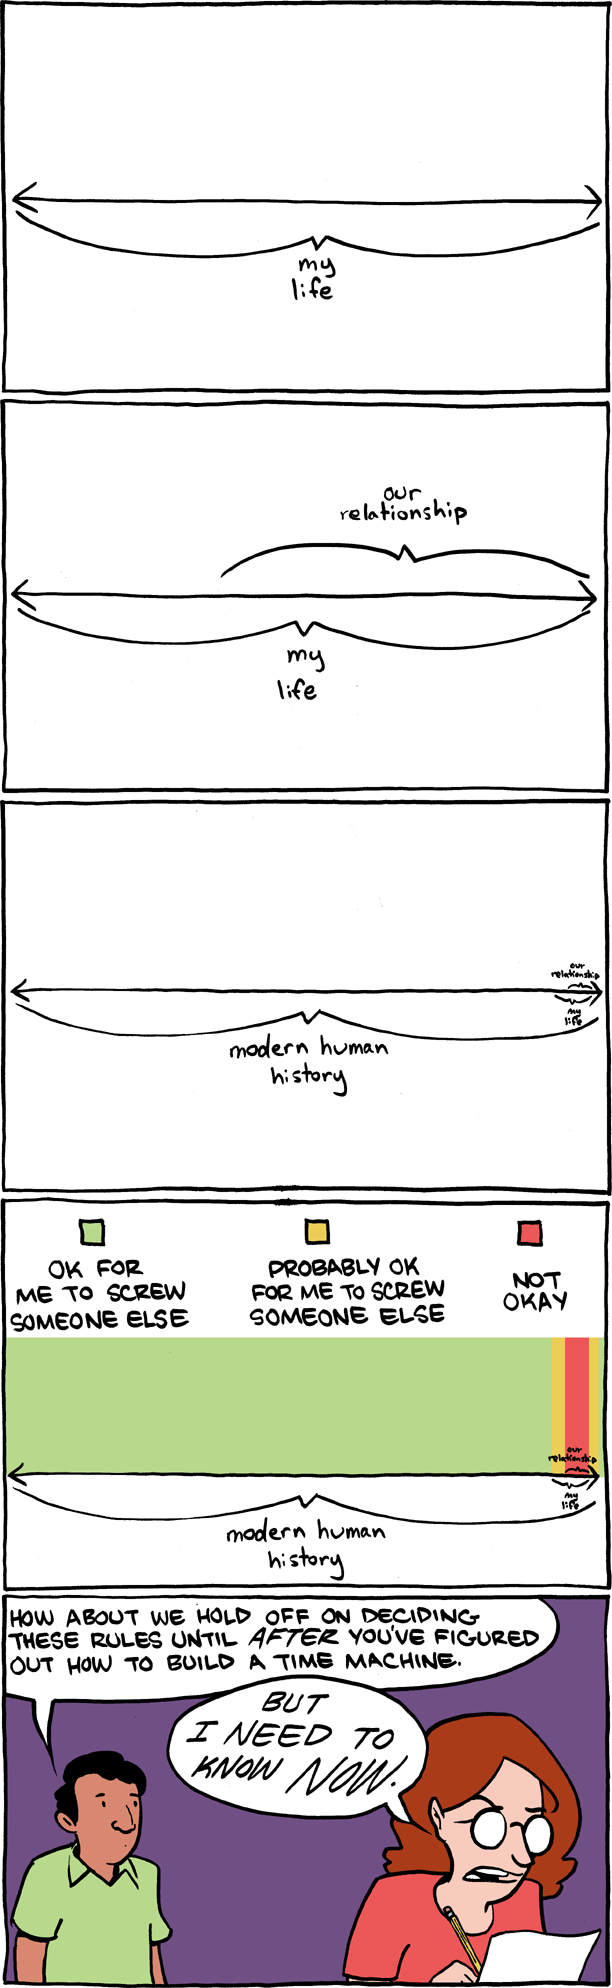 my
life
our
relationship
my
life
our
relationship
my
life
modern human
history
OK FOR
ME TO SCREW
SOMEONE ELSE
PROBABLY OK
FOR ME TO SCREW
SOMEONE ELSE
NOT
OKAY
our
relationship
my
life
modern human
history
HOW ABOUT WE HOLD OFF ON DECIDING
THESE RULES UNTIL AFTER YOU'VE FIGURED
OUT HOW TO BUILD A TIME MACHINE.
BUT
I NEED TO
KNOW NOW.